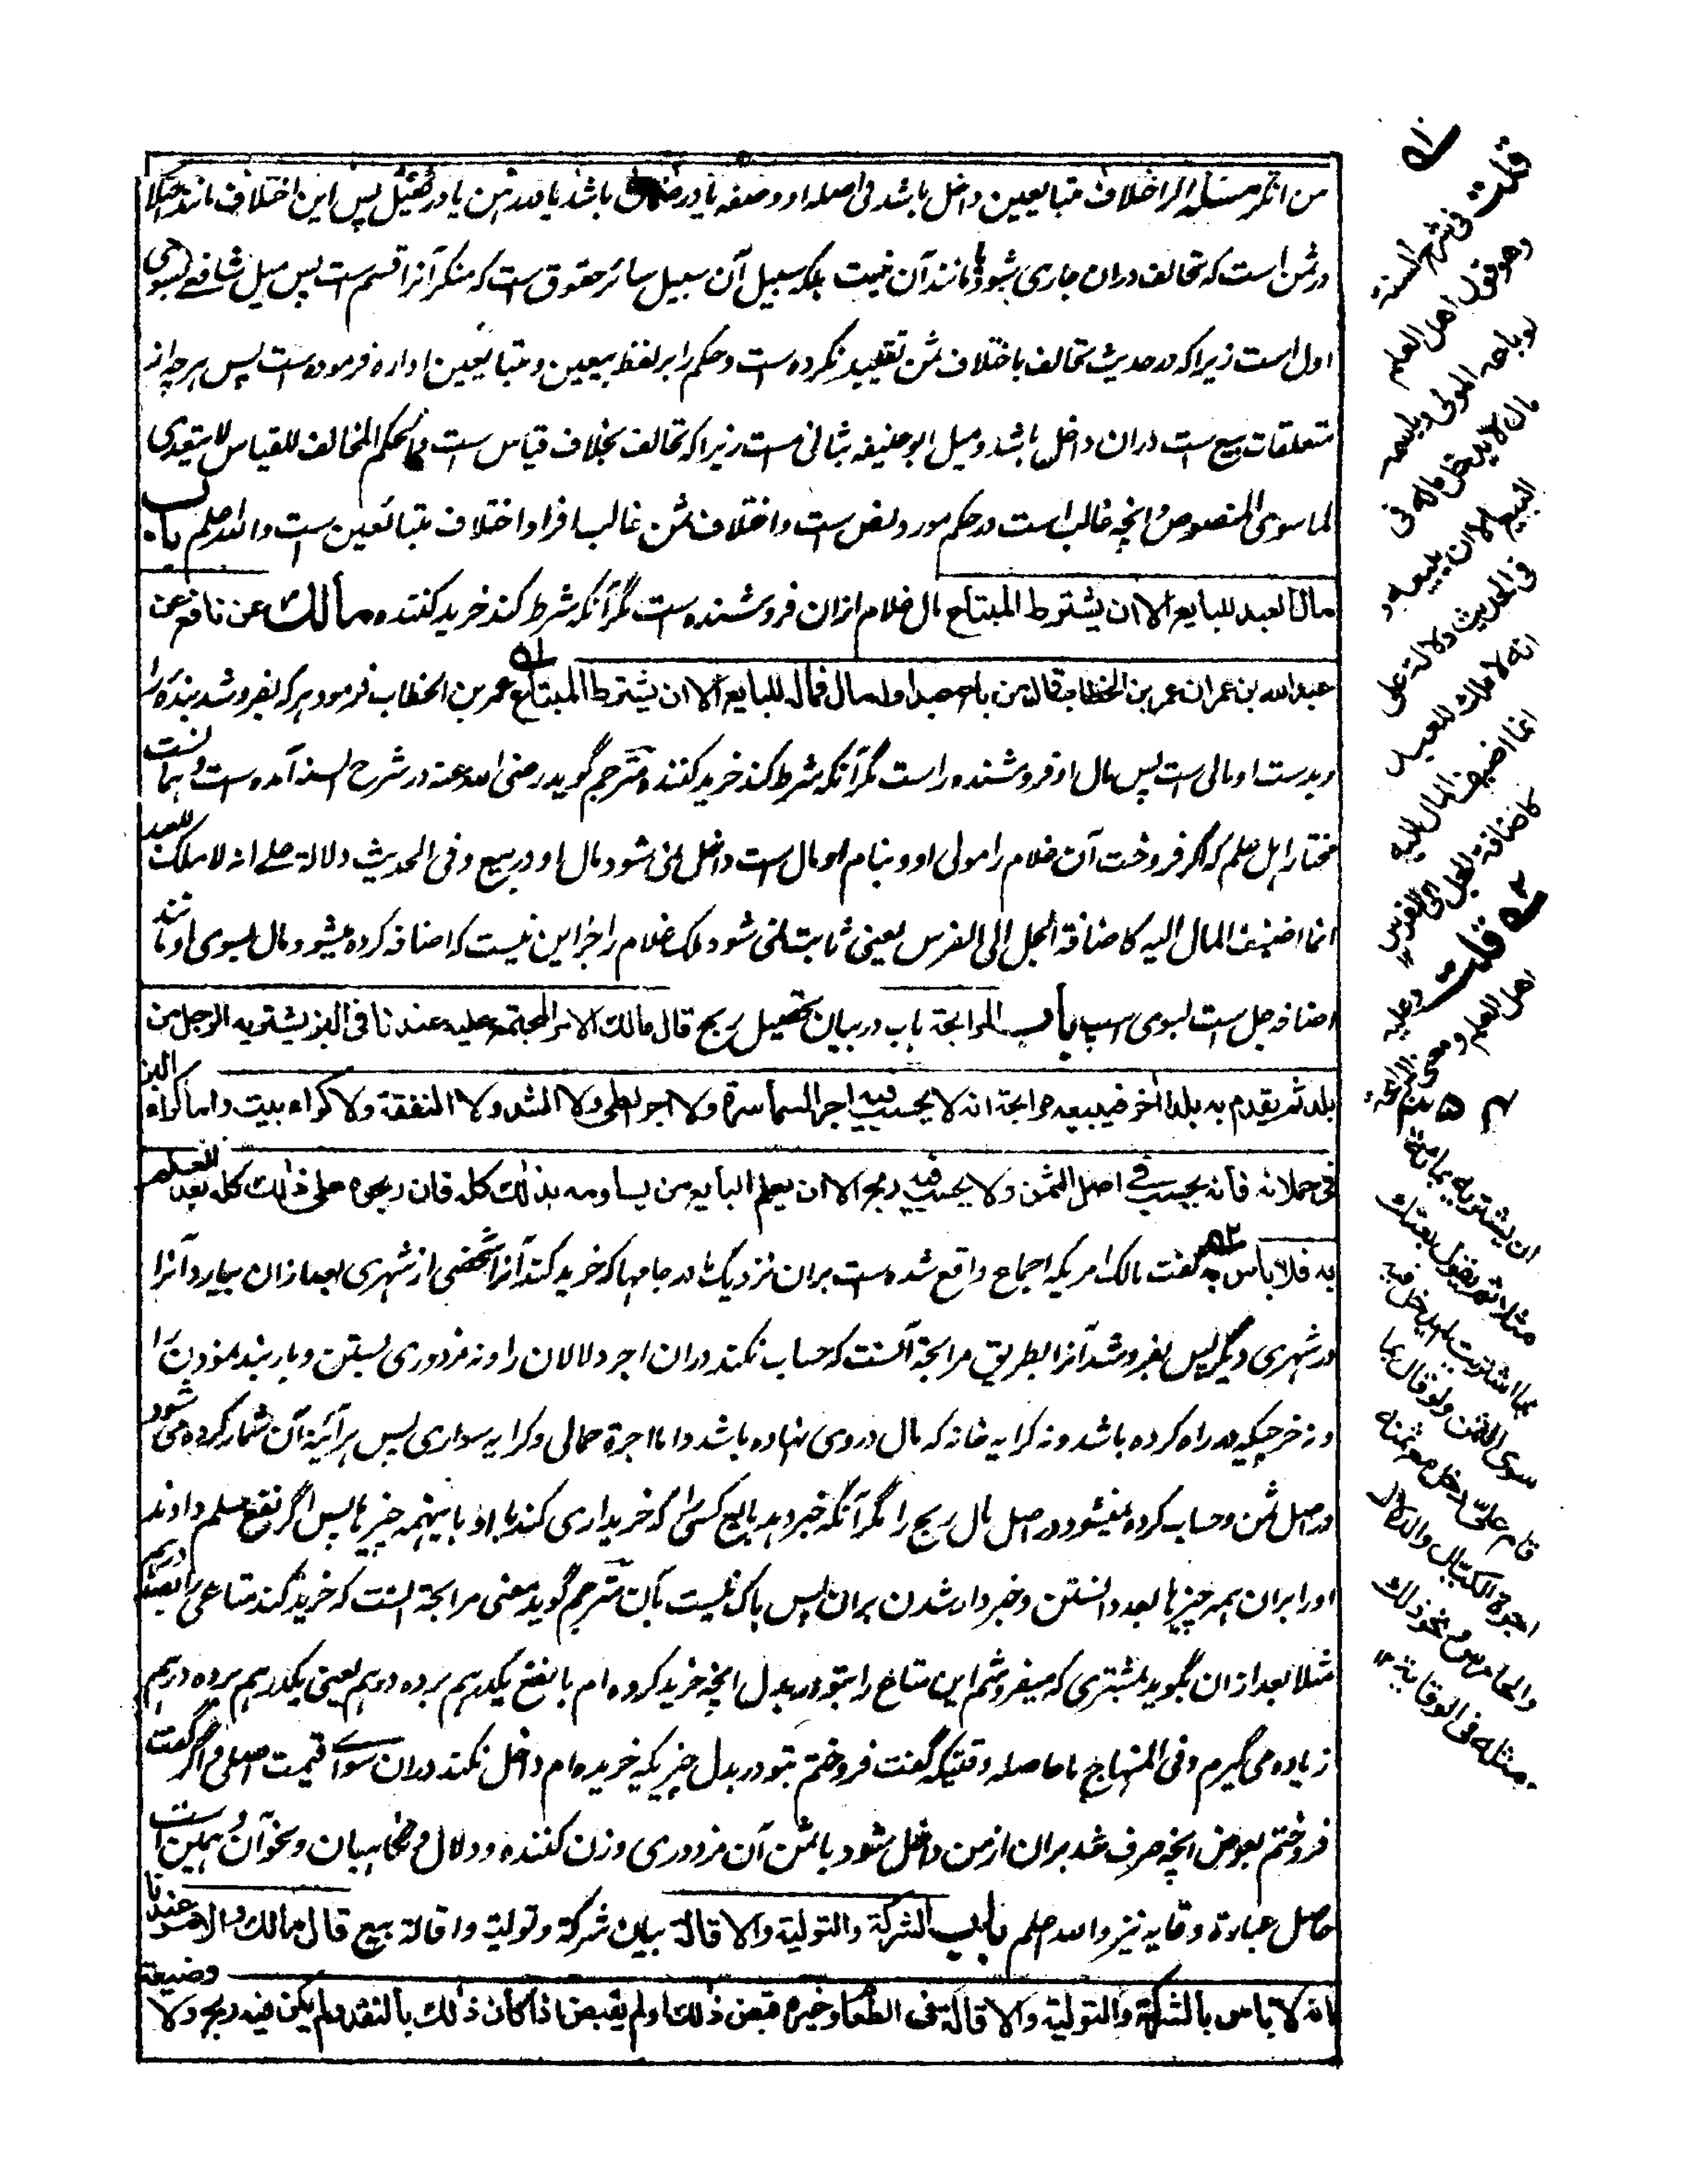 من انکر مسئله اگر اختلاف متبایعین داخل باشد فی اصله او وصفه یا در باشد یا در ثمن یا در پس این اختلاف مانند اختلاف
در ثمن است که تحالف دران جاری شود یا مانند آن نیست بلکه سبیل آن سبیل سائر حقوق ست که منکر آنرا قسم ست پس میل شافعی بسوی
اول است زیرا که در حدیث تحالف باختلاف ثمن تقیید نکرده ست و حکم را بر لفظ بیعین و متبایعین اداره فرموده ست پس هرچه از
متعلقات بیع ست دران داخل باشد و میل ابوحنیفه بثانی ست زیرا که تحالف بخلاف قیاس ست والحکم المخالف للقیاس لا یتعدی
لما سوی المنصوص و انچه غالب است در حکم مورد نص ست و اختلاف ثمن غالب افراد اختلاف متبائعین ست والله اعلم باب
مال العبد للبایع الا ان یشترط المبتاع مال غلام ازان فروشنده ست مگر آنکه شرط کند خرید کننده مالك عن نافع عن
عبد الله بن عمر ان عمر بن الخطاب قال من باع عبدا وله مال فماله للبایع الا ان یشترط المبتاع عمر بن الخطاب فرمود هر که بفروشد بنده را
و بدست او مالی ست پس مال او فروشنده راست مگر آنکه شرط کند خرید کننده مترجم گوید رضی الله عنه در شرح السنه آمده ست و همانست
مختار اهل علم که اگر فروخت آن غلام را مولی او و بنام او مال ست داخل نمی شود مال او در بیع و فی الحدیث دلالة علی انه لا ملك للعبد
انما اضیف المال الیه کاضافة الجل الی الفرس یعنی ثابت نمی شود ملک غلام را جز این نیست که اضافه کرده میشود مال بسوی او مانند
اضافه جل ست بسوی اسپ باب المرابحة باب در بیان تحصیل ربح قال مالك الامر المجتمع علیه عندنا فی البز یشتریه الرجل من
بلد ثم یقدم به بلدا اخر فیبیعه مرابحة انه لا یحسب فیه اجر السماسرة ولا اجر الطی ولا الشد ولا النفقة ولا کراء بیت واما کراء البز
فی حملانه فانه یحسب فی اصل الثمن ولا یحسب فیه ربح الا ان یعلم البایع من یساومه بذلك کله فان ربحوه علی ذلك کله بعد العلم
به فلا باس به گفت مالک امریکه اجماع واقع شده ست بران نزدیک ما در جامها که خرید کند آنرا شخصی از شهری بعد ازان بیارد آنرا
در شهری دیگر پس بفروشد آنرا بطریق مرابحة آنست که حساب نکند دران اجر دلالان را و نه مزدوری بستن و بار بند نمودن را
و نه خرچیکه در راه کرده باشد و نه کرایه خانه که مال در وی نهاده باشد و اما اجرة حمالی و کرایه سواری پس هر آئینه آن شمار کرده می شود
در اصل ثمن و حساب کرده نمیشود در اصل مال ربح را مگر آنکه خبر دهد بایع کسی را که خریداری کند با او باینهمه چیزها پس اگر نفع مسلم دادند
او را بران همه چیزها بعد دانستن و خبردار شدن بران پس باک نیست بآن مترجم گوید معنی مرابحة آنست که خرید کند متاعی را بصد درهم
مثلا بعد ازان بگوید بمشتری که میفروشم این متاع را بتو در بدل انچه خرید کرده ام با نفع یکدرهم بر ده درهم یعنی یکدرهم بر ده درهم
زیاده می گیرم و فی المنهاج ما حاصله وقتیکه گفت فروختم بتو در بدل چیزیکه خریده ام داخل نکند دران سوای قیمت اصلی و اگر گفت
فروختم بعوض انچه صرف شد بران از من داخل شود با ثمن آن مزدوری وزن کننده و دلال و نگاهبان و نحو آن و همین است
حاصل عبارة وقایه نیز والله اعلم باب الشرکة والتولیة والاقالة بیان شرکة و تولیة و اقالة بیع قال مالك والامر عندنا
انه لا باس بالشرکة والتولیة والاقالة فی الطعام وغیره قبض ذلك او لم یقبض اذا کان ذلك بالنقد ولم یکن فیه ربح ولا وضیعة
له
قلت فی شرح السنة
وهو قول اهل العلم
لو باعه المولی وبیعه
مال لا یدخل ماله فی
البیع الا ان یبیعه و
فی الحدیث دلالة علی
انه لا ملك للعبد
انما اضیف المال الیه
کاضافة الجل الی الفرس
قلت وعلیه
اهل العلم ومعنی المرابحة
ان یشتریه بمائة
مثلا ثم یقول بعتك
بما اشتریت لم یدخل فیه
سوی الثمن ولو قال بما
قام علی دخل مع ثمنه
اجرة الکیال والدلال
والحارس ونحو ذلك
مثله فی الوقایة